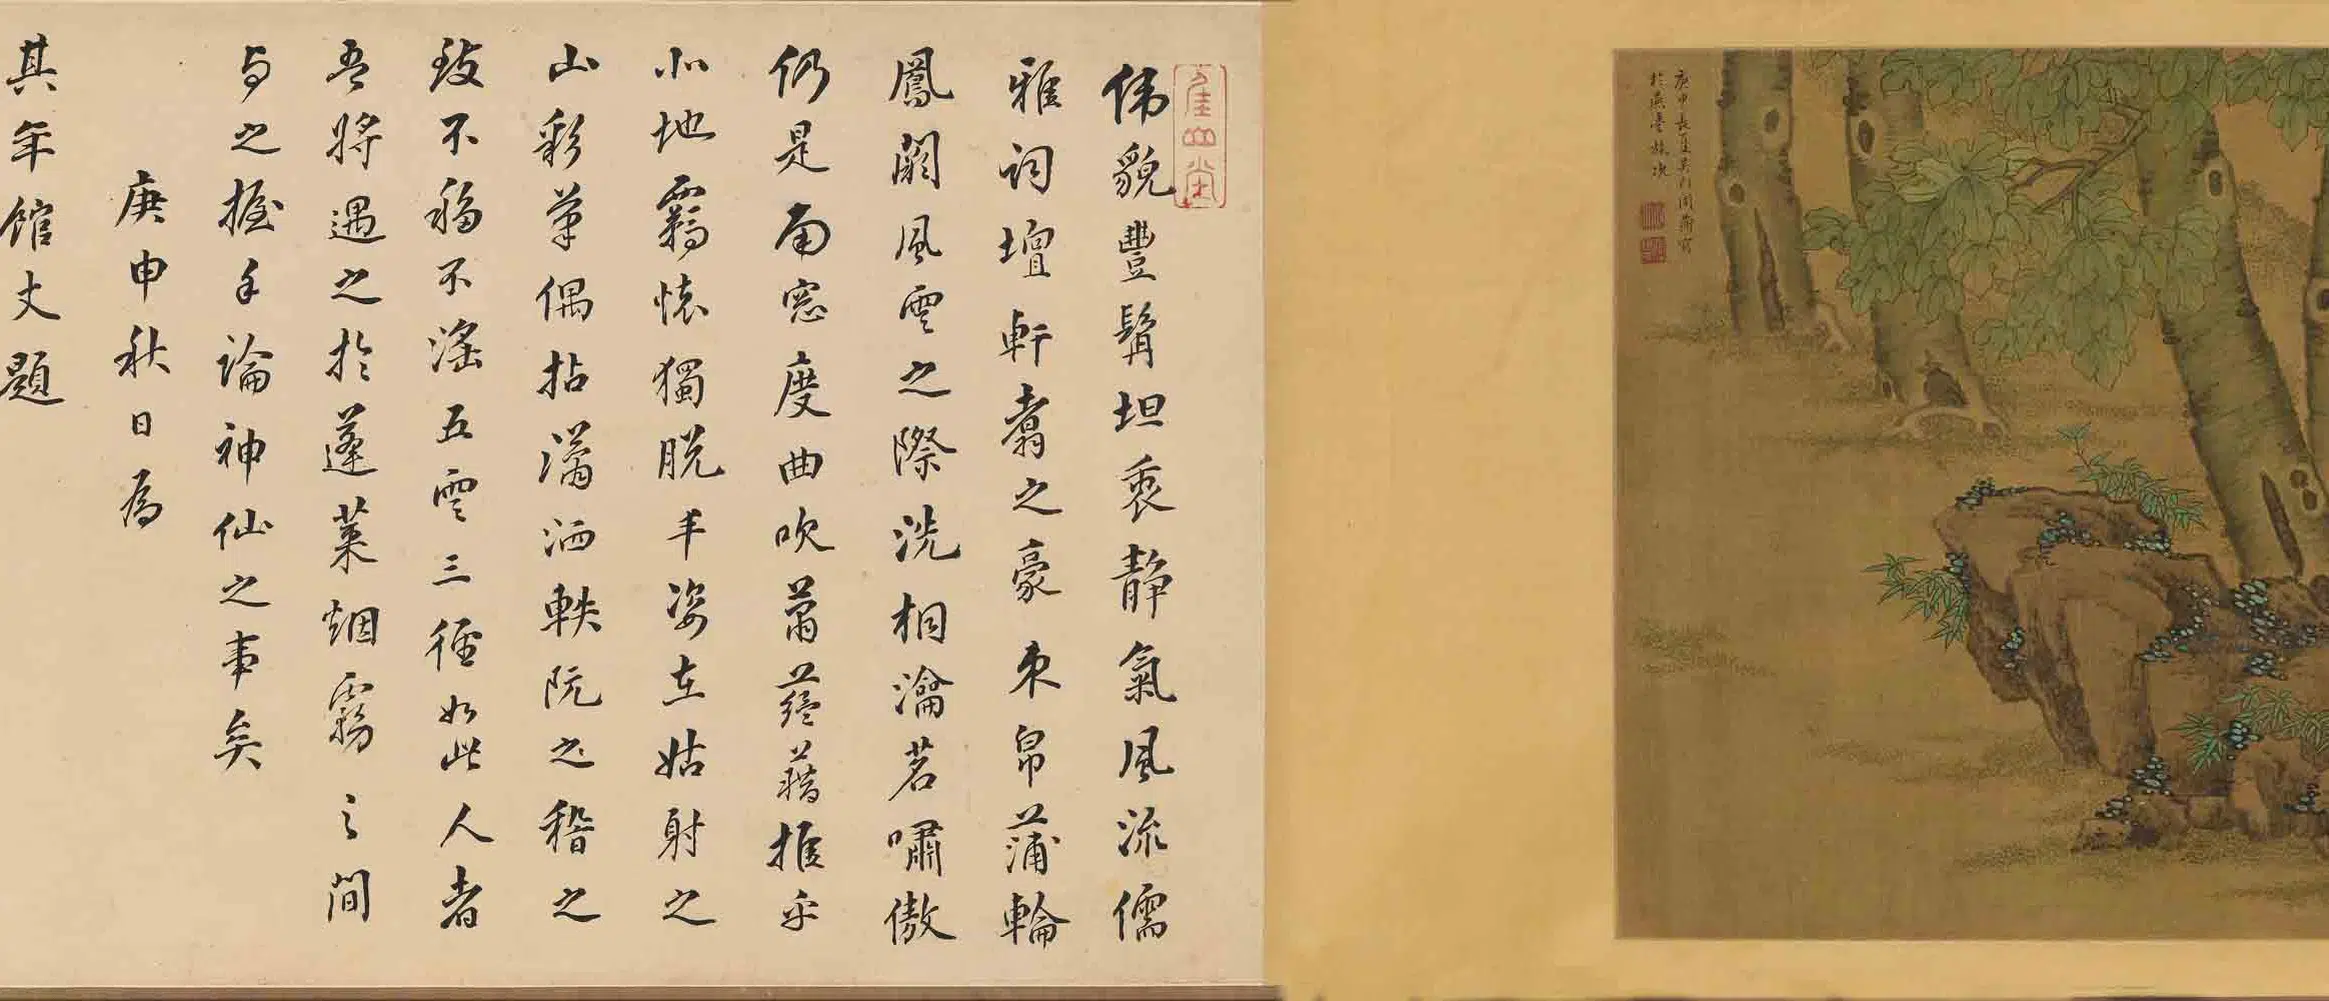 庚申長夏吳門周道寫
於燕臺旅次
偉貌豐髯坦衷靜氣風流儒
雅詞壇軒翥之豪束帛蒲輪
鳳闕風雲之際洗桐瀹茗嘯傲
仍是南窓度曲吹簫蘊藉推乎
北地羈懷獨脫丰姿在姑射之
山彩筆偶拈瀟洒軼阮之嵇之
致不移不滛五雲三徑如此人者
吾將遇之於蓬萊烟霧之間
與之握手論神仙之事矣
庚申秋日為
其年館丈題